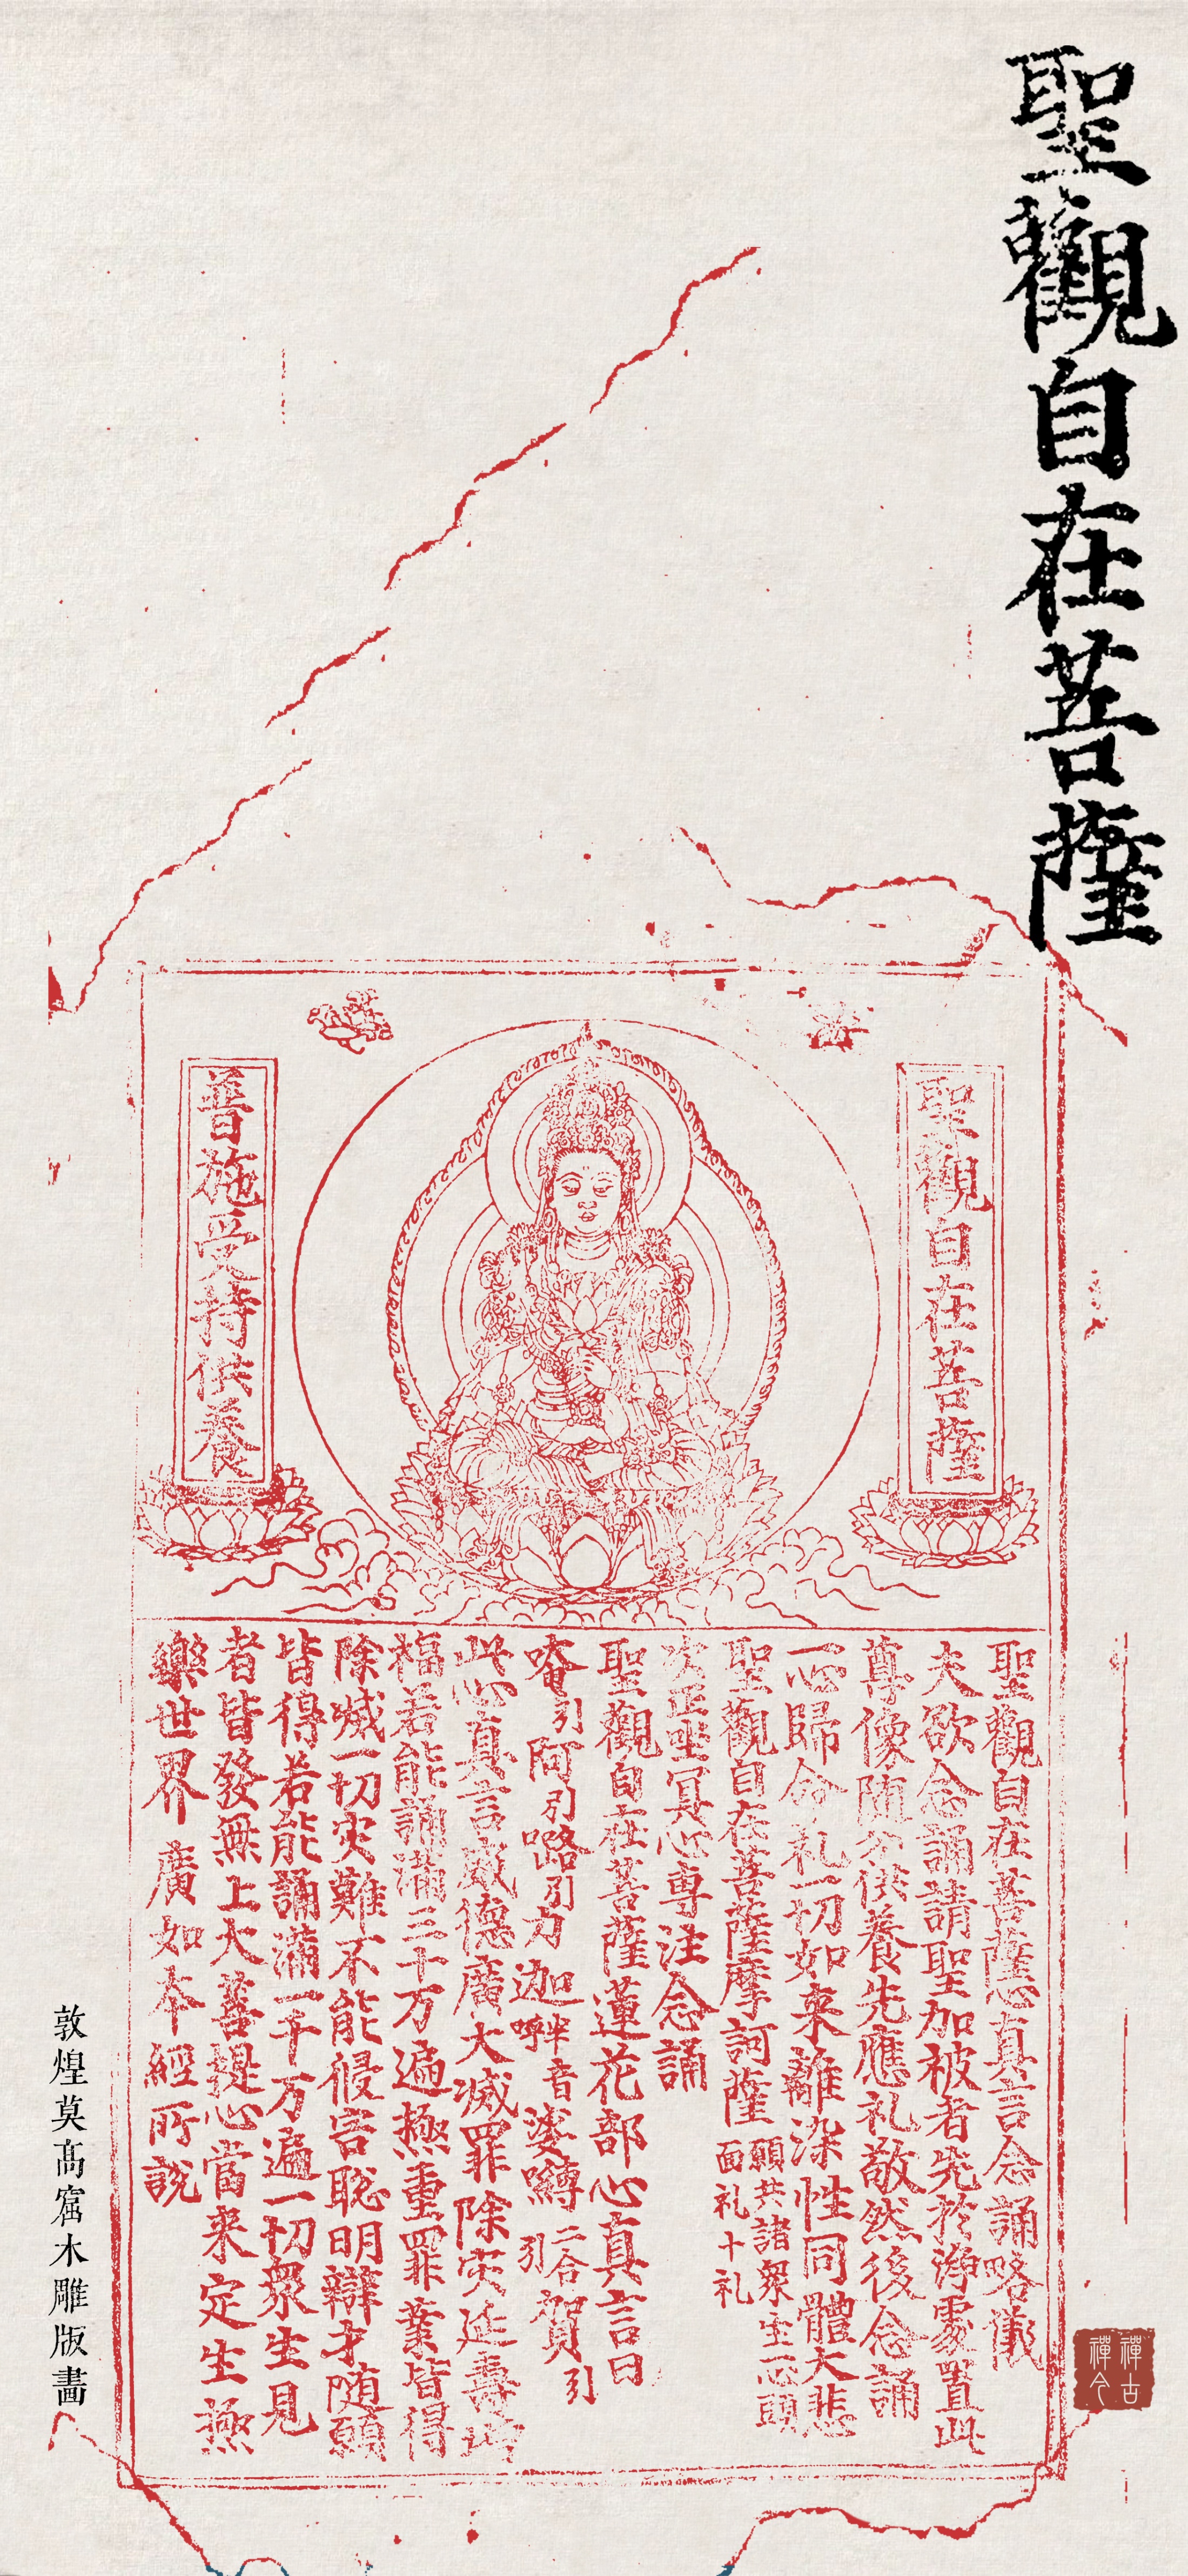 聖觀自在菩薩
聖觀自在菩薩
普施受持供養
聖觀自在菩薩心真言念誦略儀
夫欲念誦請聖加被者先於淨處置此
尊像随分供養先應礼敬然後念誦
一心歸命礼一切如來離染性同體大悲
聖觀自在菩薩摩訶薩
願共諸衆生一心頭
面礼十礼
次正坐冥心專注念誦
聖觀自在菩薩蓮花部心真言曰
唵引阿引嚕引力迦半音婆嚩二合引賀引
此心真言威德廣大滅罪除灾延壽增
福若能誦滿三十万遍極重罪業皆得
除滅一切灾難不能侵害聡明辯才随願
皆得若能誦滿一千万遍一切衆生見
者皆發無上大菩提心當来定生極
樂世界廣如本經所說
敦煌莫高窟木雕版畵
禪古
禪今